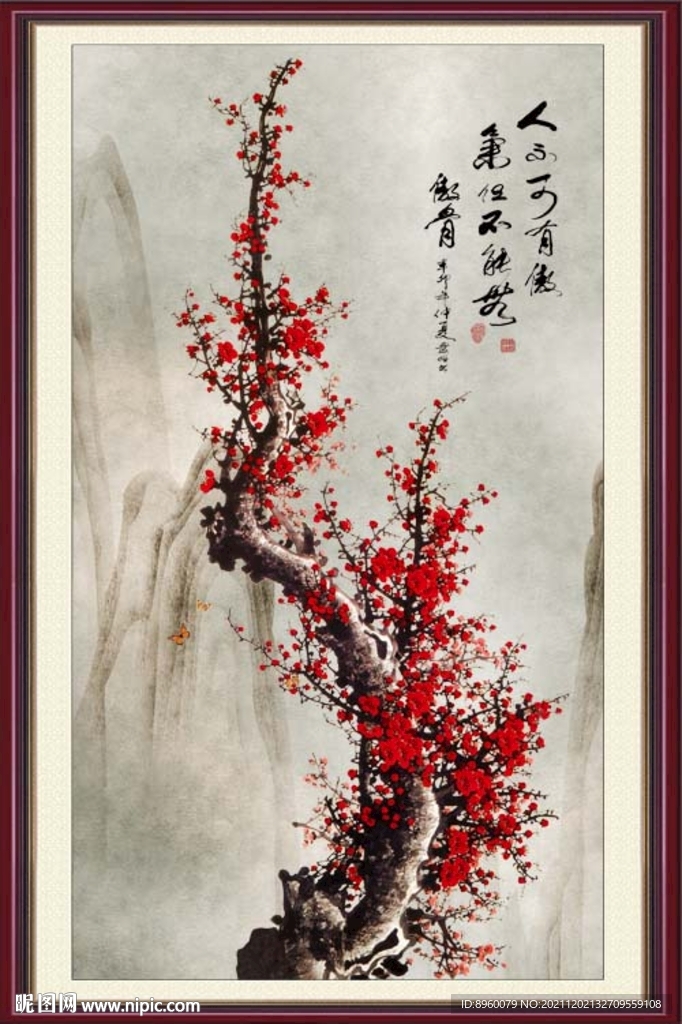 人不可有傲
氣但不能無
傲骨
辛卯年仲夏
昵图网 www.nipic.com
ID:8960079 NO:20211202132709559108